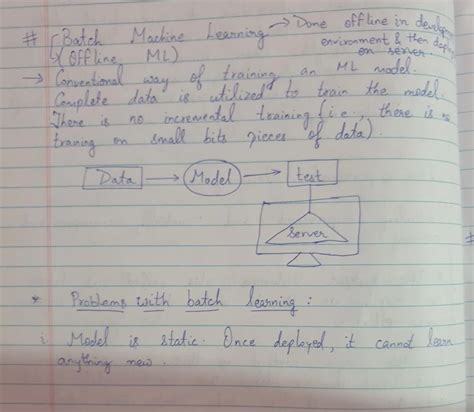 # Batch Machine Learning → Done offline in develop
(Offline ML) environment & then deploy
on server
→ Conventional way of training an ML model.
Complete data is utilized to train the model.
There is no incremental training (i.e., there is no
traning on small bits pieces of data).
Data → Model → test
server
* Problems with batch learning :
i Model is static. Once deployed, it cannot learn
anything new.